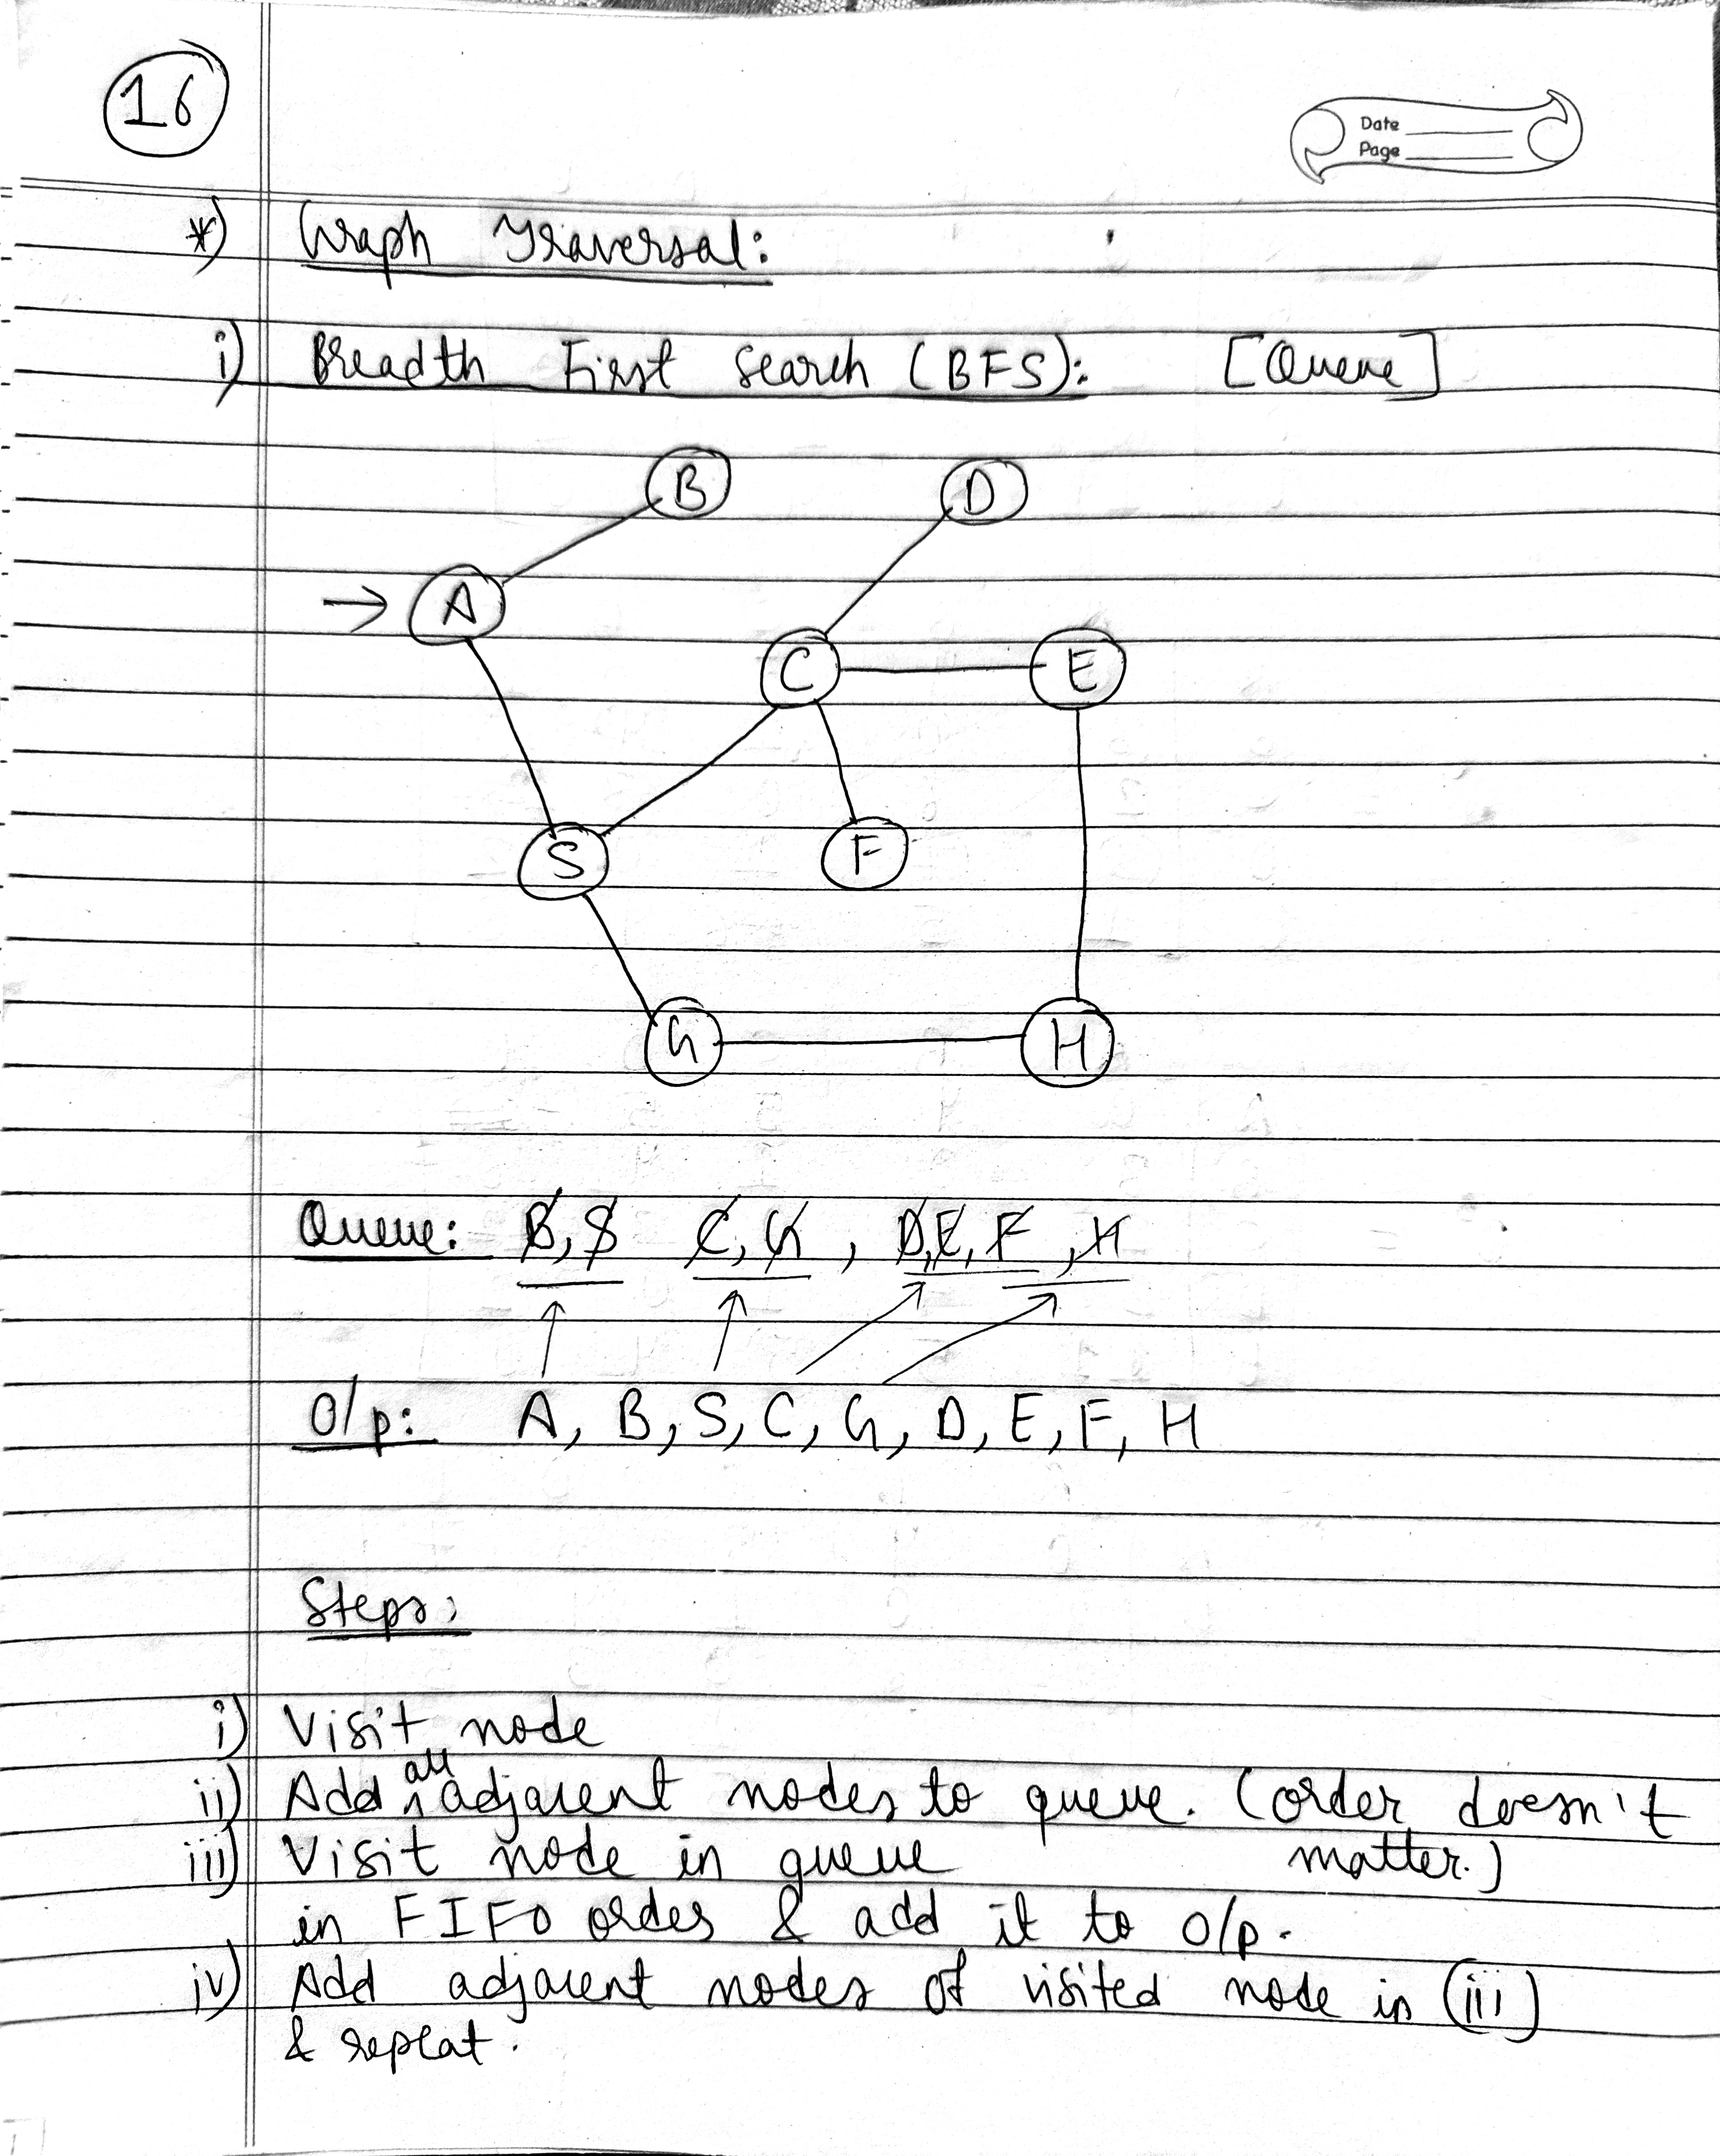 16
Date
Page
*) Graph Traversal:
i) Breadth First Search (BFS): [Queue]
B D
A
C E
S F
G H
Queue: B, S C, G, D, E, F, H
O/p: A, B, S, C, G, D, E, F, H
Steps:
i) Visit node
ii) Add all adjacent nodes to queue. (order doesn't
iii) Visit node in queue matter.)
in FIFO order & add it to o/p.
iv) Add adjacent nodes of visited node in (iii)
& repeat.